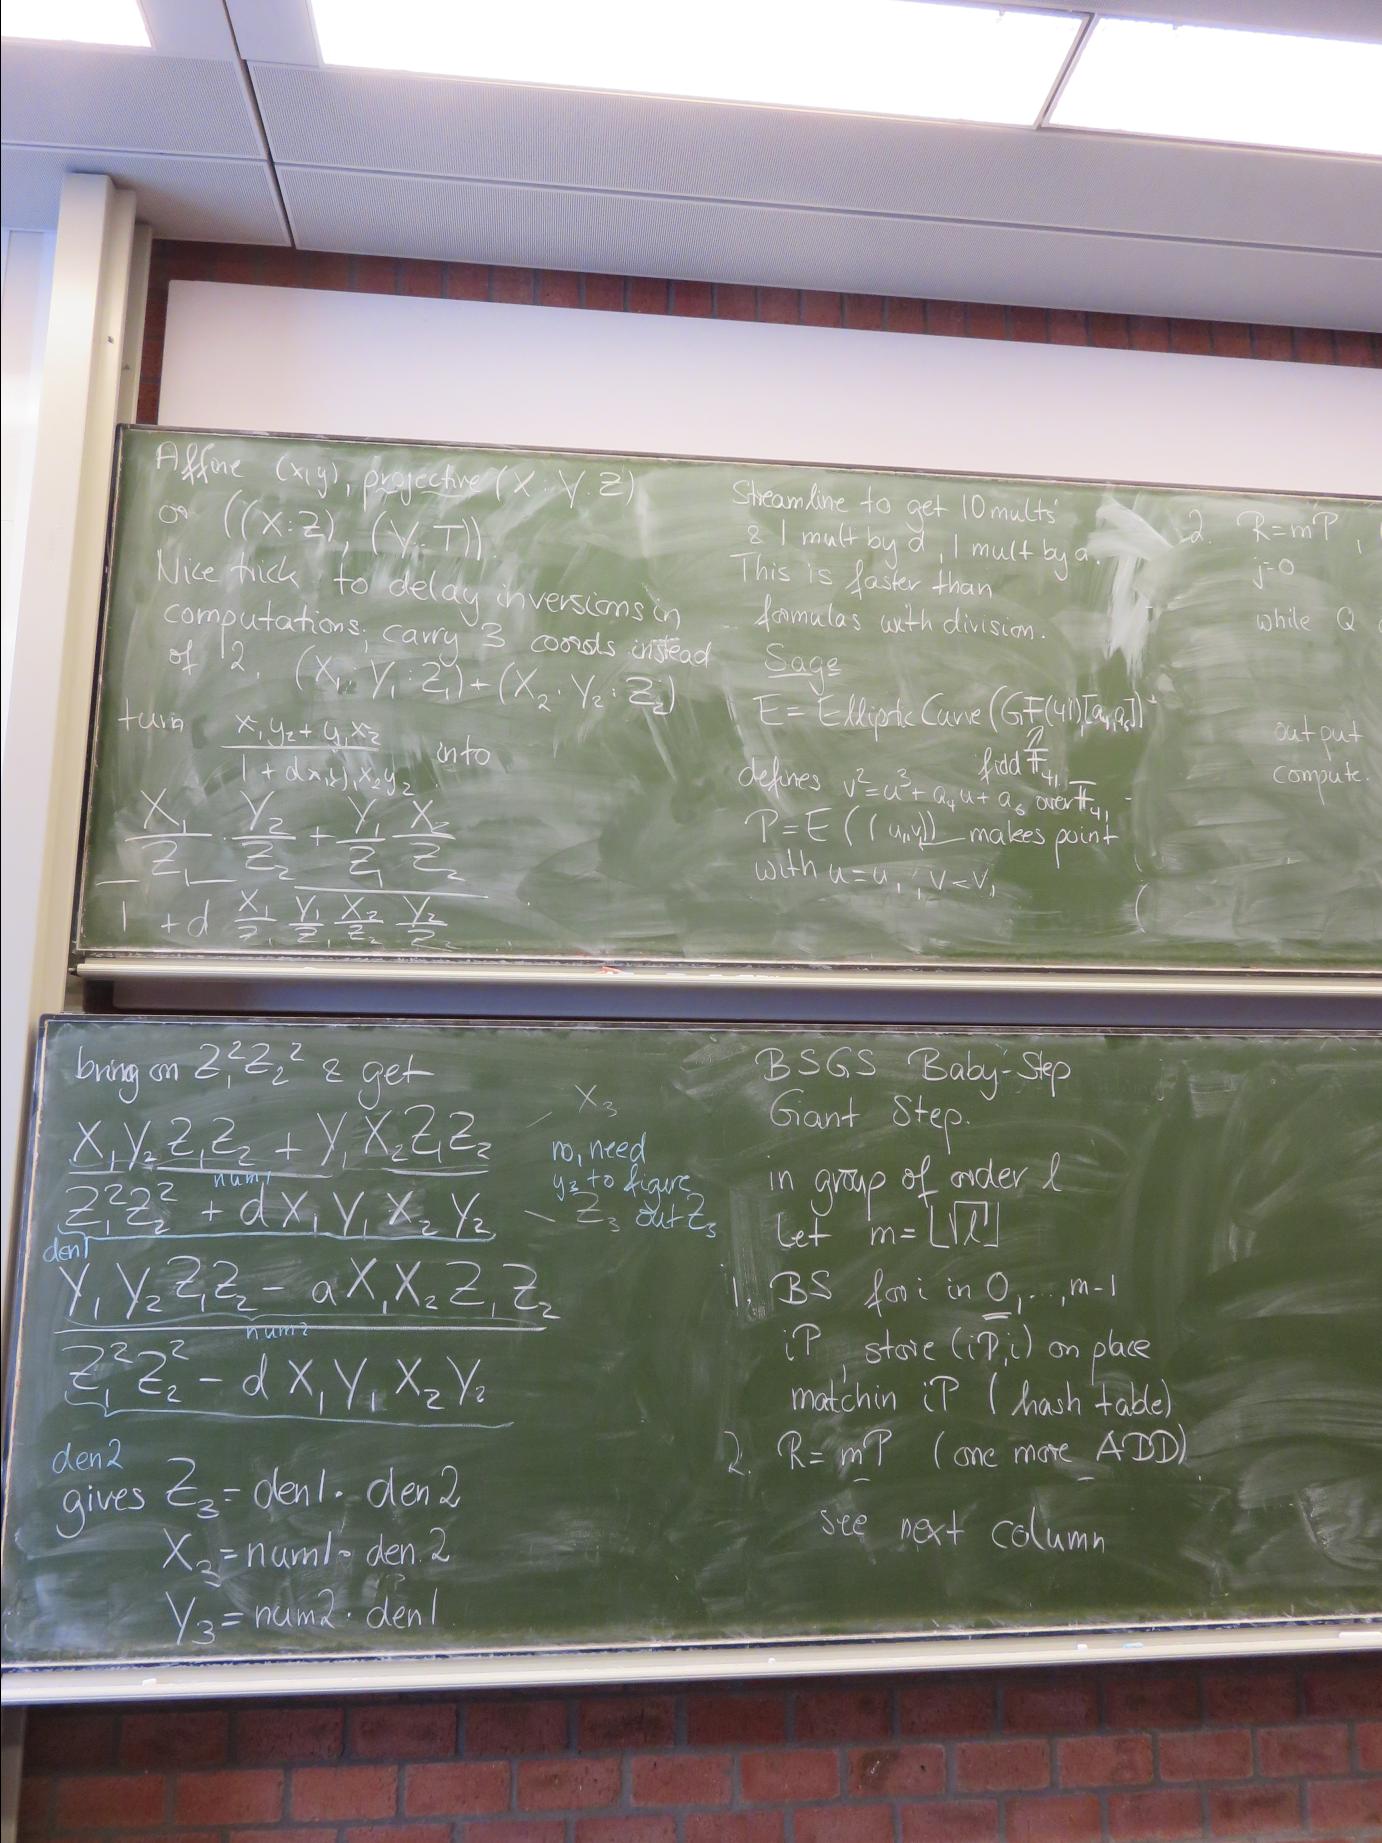 Affine (x,y), projective (X:Y:Z)
or ((X:Z), (Y:T))
Nice trick to delay inversions in
computations; carry 3 coords instead
of 2. (X₁:Y₁:Z₁)+(X₂:Y₂:Z₂)
turn (x₁y₂+y₁x₂)/(1+dx₁y₁x₂y₂) into
(X₁/Z₁ · Y₂/Z₂ + Y₁/Z₁ X₂/Z₂)/(1+d X₁/Z₁ Y₁/Z₁ X₂/Z₂ Y₂/Z₂)
Streamline to get 10 mults
& 1 mult by d, 1 mult by a.
This is faster than
formulas with division.
Sage
E = Elliptic Curve (GF(41),[a₄,a₆])
field 𝔽₄₁
defines v²=u³+a₄u+a₆ over 𝔽₄₁
P=E((u₁,v₁)) makes point
with u=u₁, v=v₁
2. R=mP,
j=0
while Q
output
compute.
bring on Z₁²Z₂² & get
X₁Y₂Z₁Z₂ + Y₁X₂Z₁Z₂ X₃
num1
Z₁²Z₂² + dX₁Y₁X₂Y₂ Z₃
den1
no, need
y₃ to figure
out Z₃
Y₁Y₂Z₁Z₂ - aX₁X₂Z₁Z₂
num2
Z₁²Z₂² - dX₁Y₁X₂Y₂
den2
gives Z₃ = den1 · den2
X₃ = num1 · den2
Y₃ = num2 · den1
BSGS Baby-Step
Giant Step.
in group of order l
Let m=⌊√l⌋
1. BS for i in 0,...,m-1
iP, store (iP,i) on place
matchin iP (hash table)
2. R = mP (one more ADD)
see next column